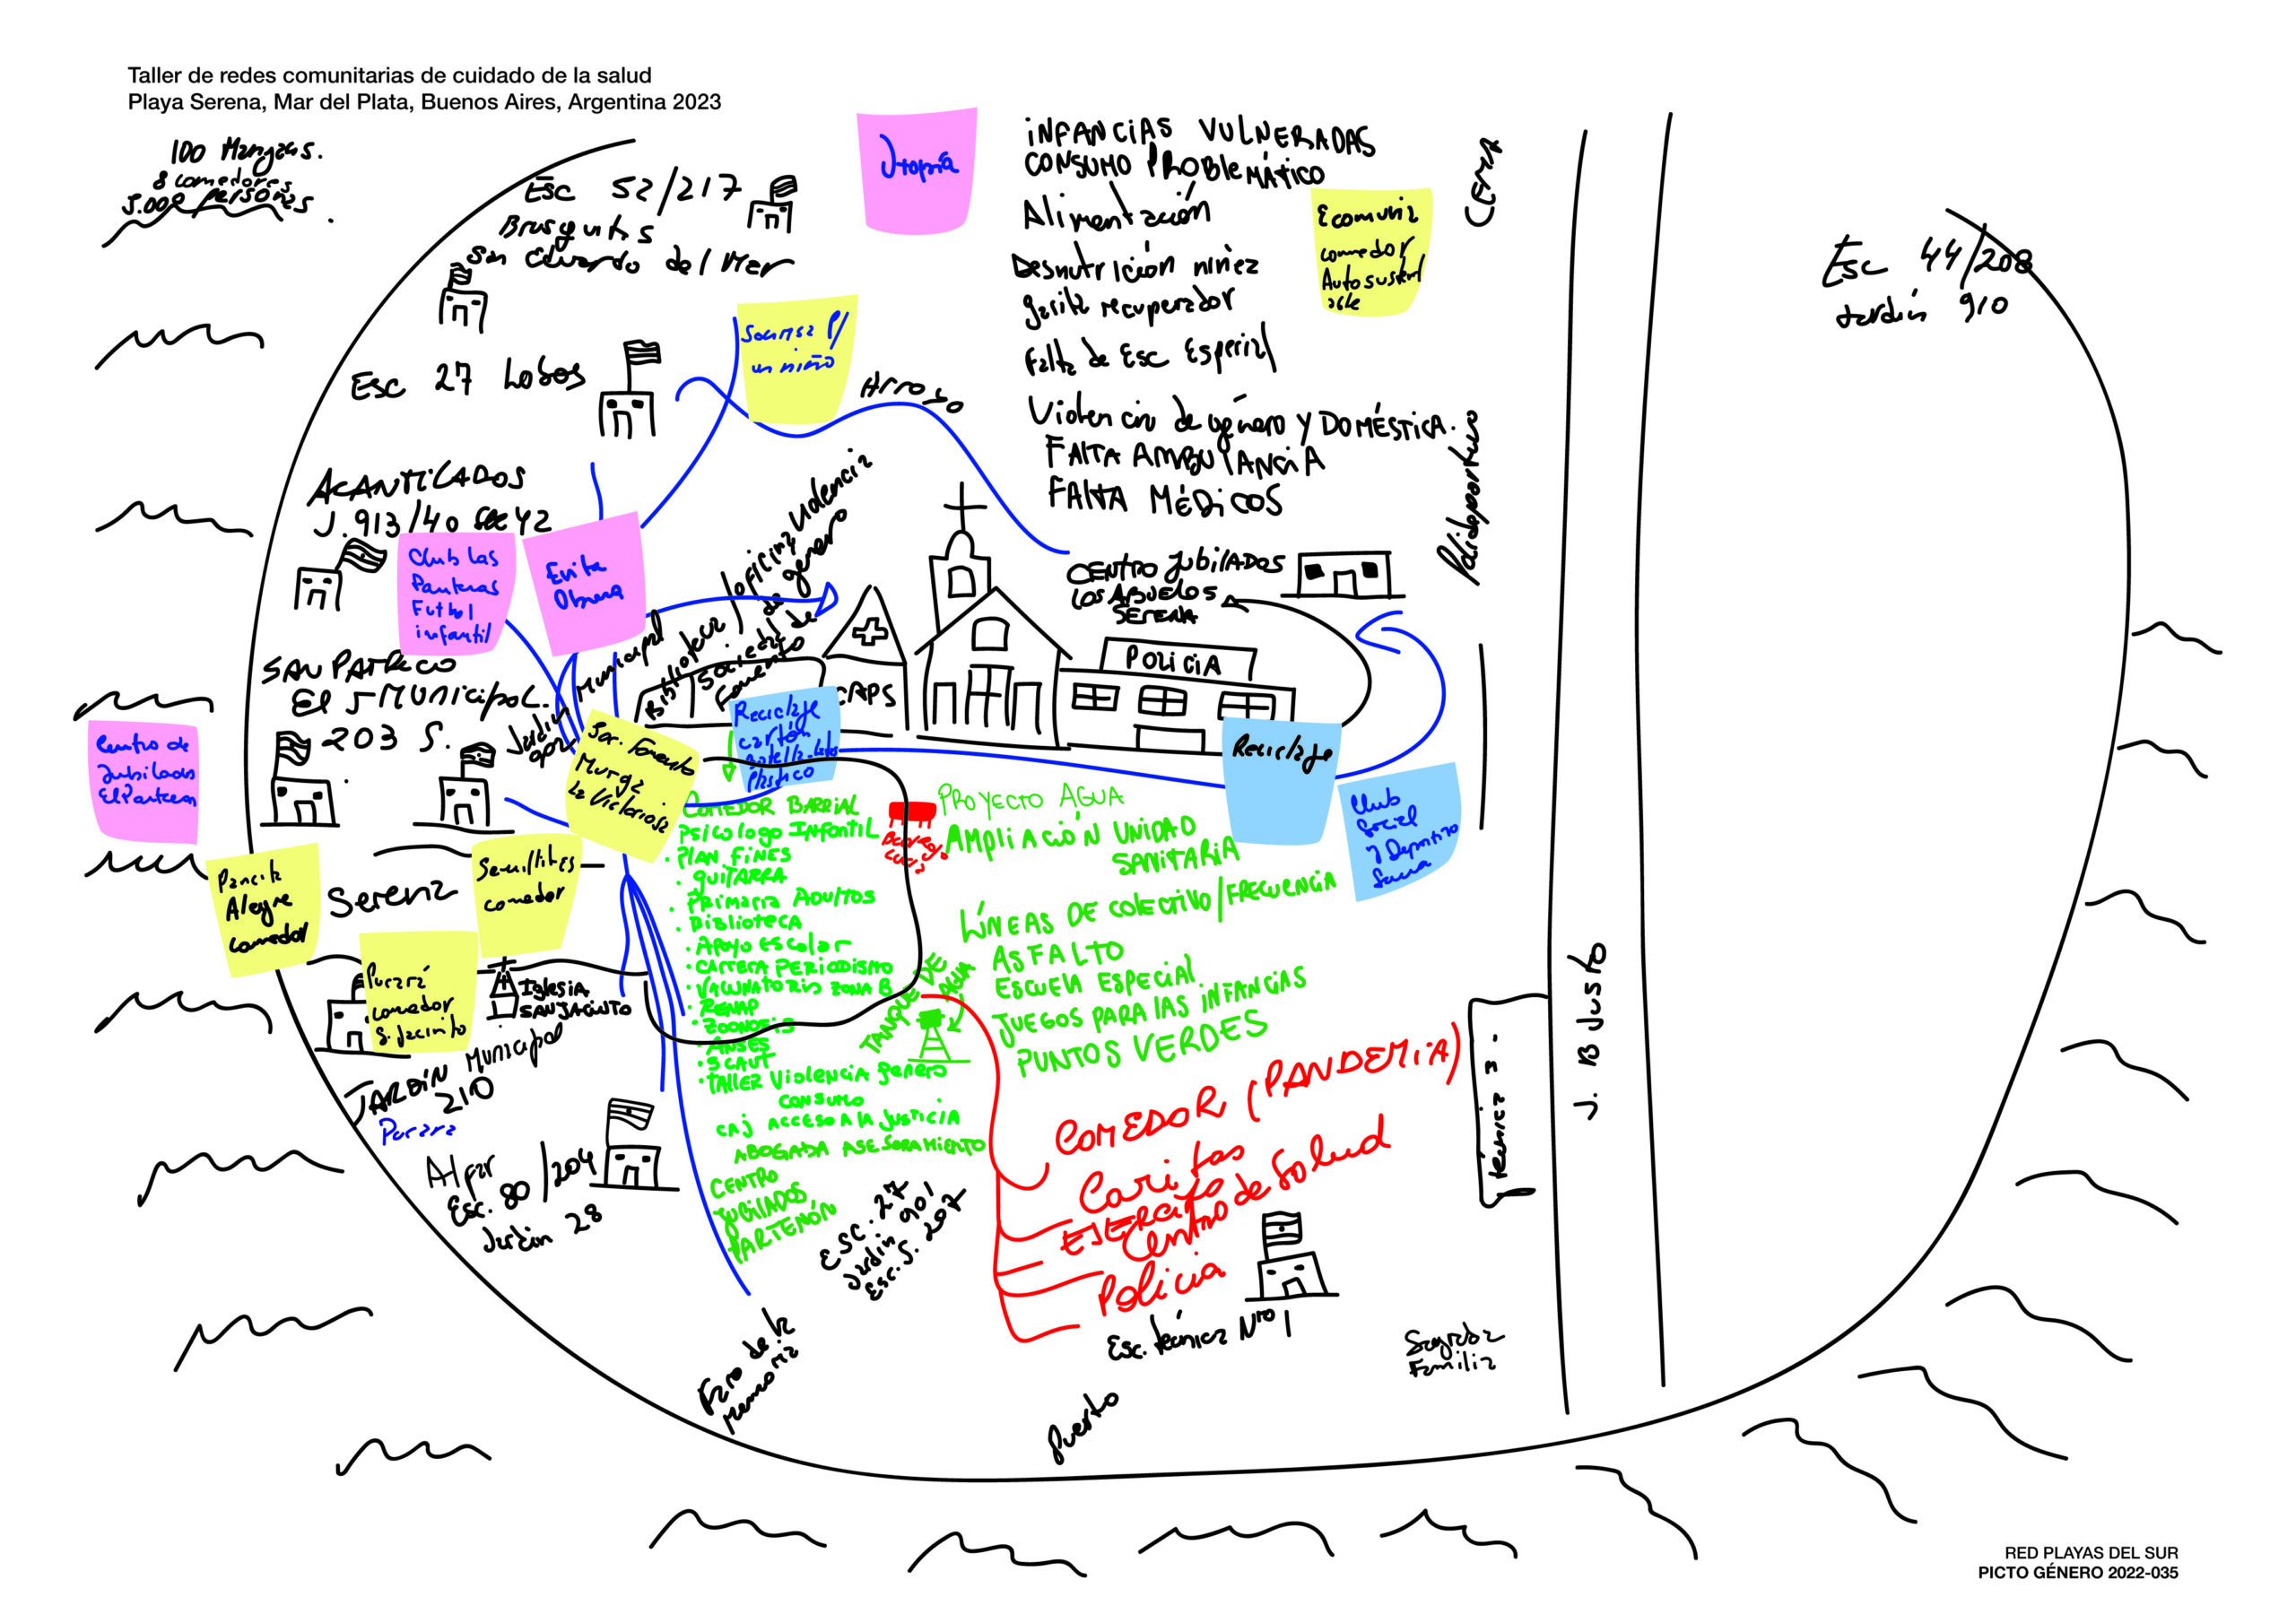 Taller de redes comunitarias de cuidado de la salud
Playa Serena, Mar del Plata, Buenos Aires, Argentina 2023
100 Manzanas.
8 comedores
5.000 personas.
Esc 52/217
Brusquitas
San Eduardo del Mar
Esc 27 Lobos
Utopía
INFANCIAS VULNERADAS
CONSUMO PROBLEMÁTICO
Alimentación
Desnutrición niñez
garita recuperador
Falta de Esc Especial
Violencia de género Y DOMÉSTICA.
FALTA AMBULANCIA
FALTA MÉDICOS
Ecomuniz
comedor
Autosustent
able
CEMA
Esc 44/208
Jardín 910
Sonrisa P/
un niño
Arroyo
Polideportivo
ACANTILADOS
J. 913/40 sec 42
Club Las
Panteras
Futbol
infantil
Evita
Obrera
Municipal
Biblioteca/oficina violencia
de genero
Sociedad de
Fomento
CAPS
POLICIA
CENTRO JUBILADOS
LOS ABUELOS
SERENA
SAN PATRICIO
El 5 MUNICIPAL.
203 S.
Jardín
902
Centro de
Jubilados
El Partenon
Soc. Fomento
Murga
La Victoriosa
Reciclaje
cartón
botella-lata
Plástico
Reciclaje
Club
Social
y Deportivo
Serena
Pancita
Alegre
comedor
Serena
Semillitas
comedor
Purará
comedor
S. Jacinto
Iglesia
SAN JACINTO
JARDÍN Municipal
210
Purara
Alfar
Esc. 80/204
Jardín 28
COMEDOR BARRIAL
PSICOLOGO INFANTIL
· PLAN FINES
· GUITARRA
· PRIMARIA ADULTOS
· BIBLIOTECA
· APOYO ESCOLAR
· CARRERA PERIODISMO
· VACUNATORIO ZONA B
· RENAP
· ZOONOSIS
· ANSES
· SCAUT
· TALLER VIOLENCIA genero
CONSUMO
CAJ ACCESO A LA JUSTICIA
ABOGADA ASESORAMIENTO
CENTRO
JUBILADOS
PARTENÓN
PROYECTO AGUA
AMPLIACIÓN UNIDAD
SANITARIA
LÍNEAS DE COLECTIVO/FRECUENCIA
ASFALTO
ESCUELA ESPECIAL
JUEGOS PARA LAS INFANCIAS
PUNTOS VERDES
TANQUE DE
AGUA
COMEDOR (PANDEMIA)
Caritas
EJERCITO
Centro de Salud
Policia
Esc. 27
Jardín 901
Esc. S. 207
Esc. técnica Nro 1
Sagrada
Familia
Faro de la
memoria
Puerto
técnica 3.
J. B Justo
RED PLAYAS DEL SUR
PICTO GÉNERO 2022-035